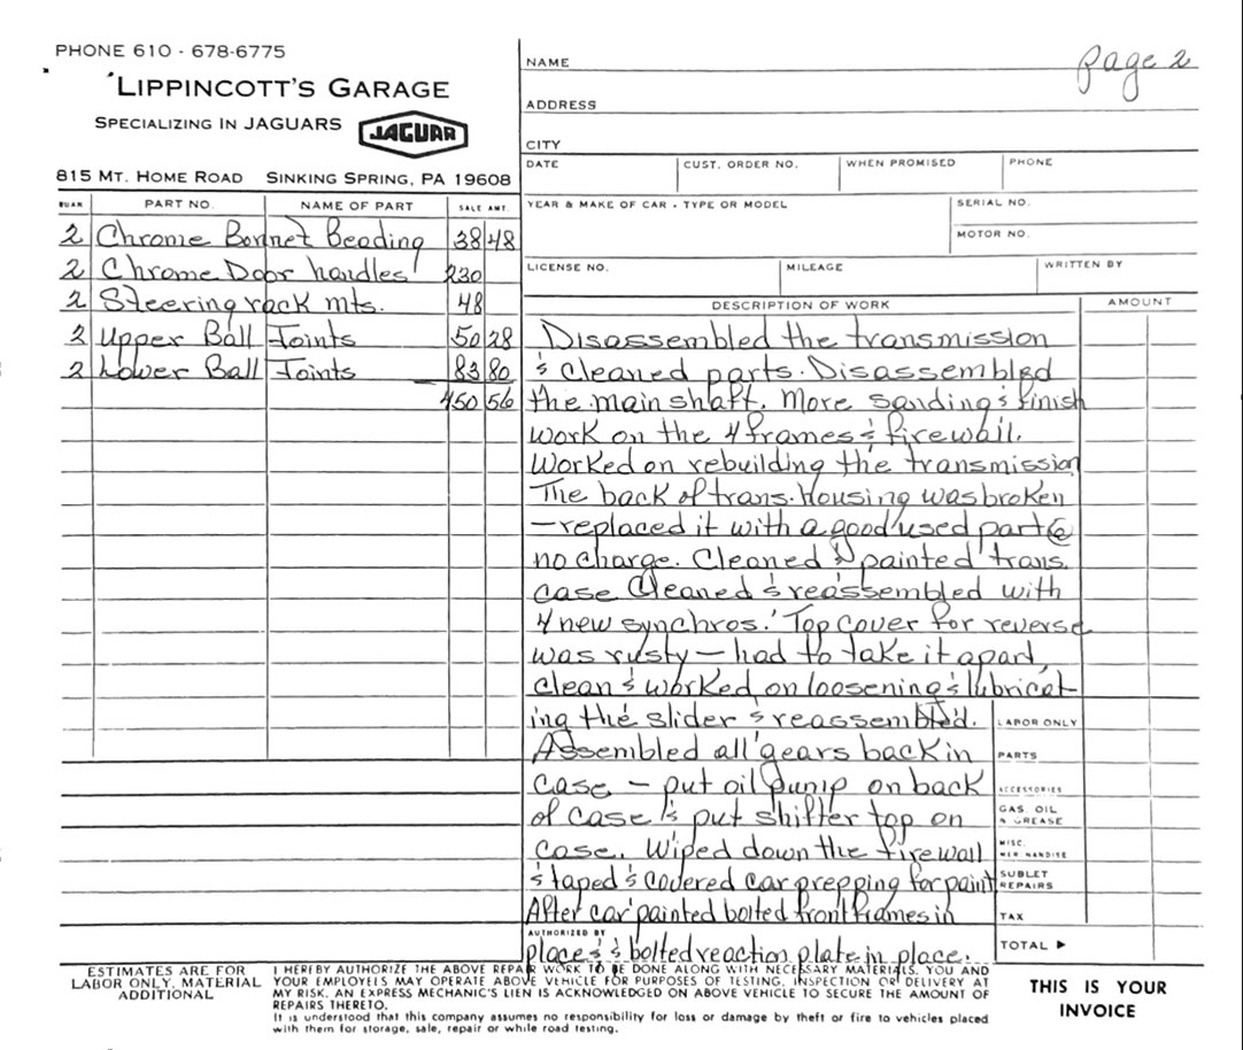 PHONE 610 - 678-6775
LIPPINCOTT'S GARAGE
SPECIALIZING IN JAGUARS
JAGUAR
815 MT. HOME ROAD SINKING SPRING, PA 19608
NAME
Page 2
ADDRESS
CITY
DATE CUST. ORDER NO. WHEN PROMISED PHONE
YEAR & MAKE OF CAR - TYPE OR MODEL SERIAL NO.
MOTOR NO.
LICENSE NO. MILEAGE WRITTEN BY
QUAN. PART NO. NAME OF PART SALE AMT.
2 Chrome Bonnet Beading 38 48
2 Chrome Door handles 230
2 Steering rack mts. 48
2 Upper Ball Joints 50 28
2 Lower Ball Joints 83 80
450 56
DESCRIPTION OF WORK AMOUNT
Disassembled the transmission
& cleaned parts. Disassembled
the main shaft. More sanding & finish
work on the 4 frames & firewall.
Worked on rebuilding the transmission
The back of trans. Housing was broken
— replaced it with a good used part @
no charge. Cleaned & painted trans.
case Cleaned & reassembled with
4 new synchros. Top cover for reverse
was rusty — had to take it apart,
clean & worked on loosening & lubricat-
ing the slider & reassembled.
Assembled all gears back in
case — put oil pump on back
of case & put shifter top on
case. Wiped down the firewall
& taped & covered car prepping for paint
After car painted bolted front frames in
place & & bolted reaction plate in place.
LABOR ONLY
PARTS
ACCESSORIES
GAS, OIL
& GREASE
MISC.
MERCHANDISE
SUBLET
REPAIRS
TAX
TOTAL ►
AUTHORIZED BY
ESTIMATES ARE FOR
LABOR ONLY, MATERIAL
ADDITIONAL
I HEREBY AUTHORIZE THE ABOVE REPAIR WORK TO BE DONE ALONG WITH NECESSARY MATERIALS. YOU AND
YOUR EMPLOYEES MAY OPERATE ABOVE VEHICLE FOR PURPOSES OF TESTING, INSPECTION OR DELIVERY AT
MY RISK. AN EXPRESS MECHANIC'S LIEN IS ACKNOWLEDGED ON ABOVE VEHICLE TO SECURE THE AMOUNT OF
REPAIRS THERETO.
It is understood that this company assumes no responsibility for loss or damage by theft or fire to vehicles placed
with them for storage, sale, repair or while road testing.
THIS IS YOUR
INVOICE